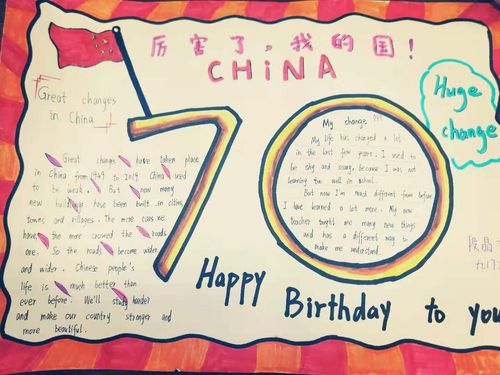 厉害了，我的国！
CHiNA
Great changes
in China
Great changes have taken place
in China from 1949 to 2019. China used
to be weak. But now many
new buildings have been built in cities,
towns and villages. The more cars we
have, the more crowed the roads
are. So the roads become wider
and wider. Chinese people's
life is much better than
ever before. We'll study harder
and make our country stronger and
more beautiful.
70
My change
My life has changed a lot
in the last few years. I used to
be shy and scary, because I was not
learning too well in school.
But now I'm much different from before
I have learned a lot more. My new
teacher taught me many new things
and has a different way to
make me understand.
Huge
change
Happy Birthday to you